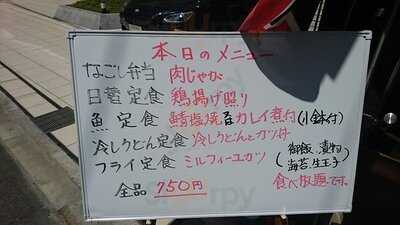 本日のメニュー
なごし弁当 肉じゃが
日替定食 鶏揚げ照り
魚定食 鯖塩焼 カレイ煮付(小鉢付)
冷しうどん定食 冷しうどんとカツ丼
フライ定食 ミルフィーユカツ
(御飯、漬物
海苔、生玉子)
全品 750円
食べ放題です。